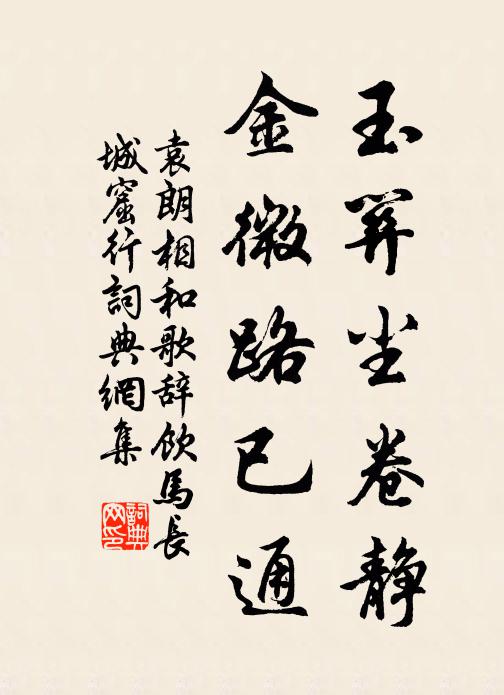 玉関尘卷静
金微路已通
袁朗相和歌辞饮馬長
城窟行詞典網集
詞典
网印